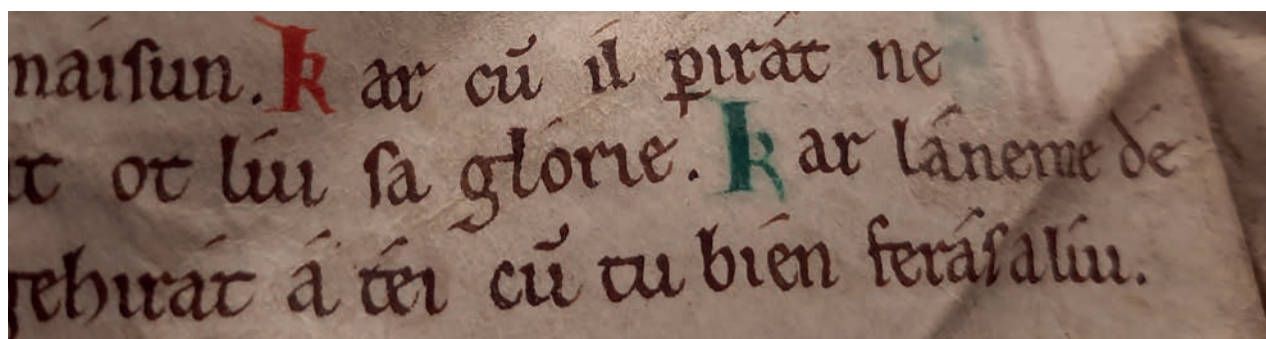 naiſun. Kar cū il pirat ne
t ot lui ſa glórie. Kar láneme dé
gehirát á téi cū tu bien feráſ a lúi.